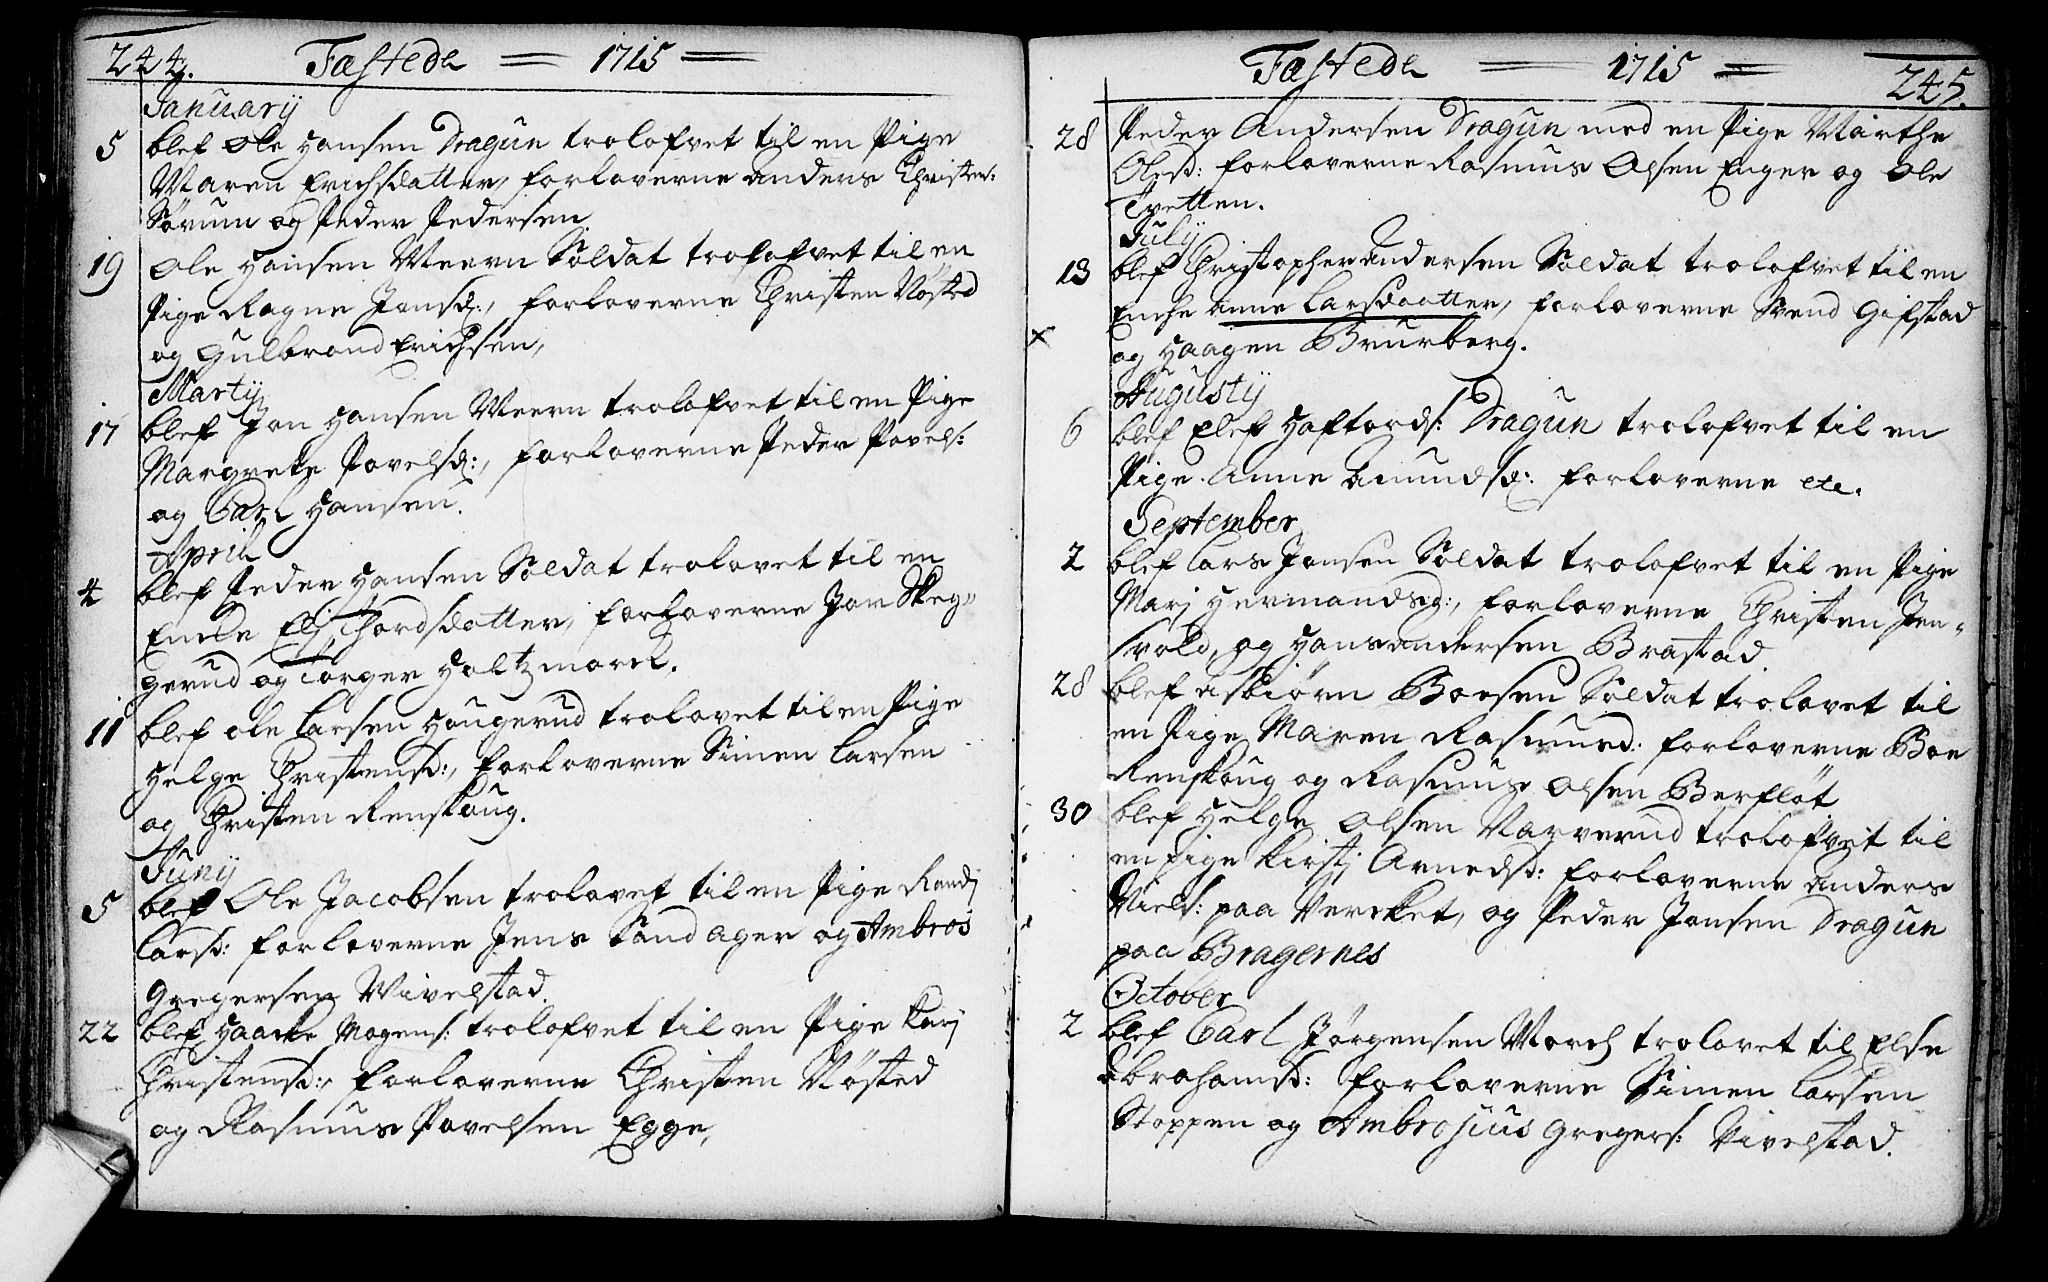 244. Fæstede = 1715 =
Januarij
5 blef Ole Hansen Dragun trolofvet til en Pige
Maren Erichsdatter, forloverne Anders Christens:
Sørum og Peder Pedersen
19 Ole Hansen Meern Soldat trolofvet til en
Pige Ragne Jonsd:, forloverne Christen Nøsted
og Gulbrand Erichsen,
Martij
17 blef Jon Hansen Meern trolofvet til en Pige
Margrete Povelsd:, forloverne Peder Povels:
og Carl Hansen.
April
4 blef Peder Hansen Soldat trolovet til en
Encke Elj Thordsdatter, forloverne Jon Skeg-
gerud og Torger Holtzmarck.
11 blef Ole Larsen Haugerud trolovet til en Pige
Helge Christensd:, forloverne Simen Larsen
og Christen Renskaug.
Junij
5 blef Ole Jacobsen trolovet til en Pige Randj
Larsd: forloverne Jens Sandager og Ambros
Gregersen Vivelstad.
22 blef Haacke Mogens: trolofvet til en Pige Karj
Christensd:, forloverne Christen Nøsted
og Rasmus Povelsen Egge,
Fæstede = 1715 = 245.
28 Peder Andersen Dragun med en Pige Marthe
Olesd: forloverne Rasmus Olsen Enger og Ole
Tvetten.
Julij
13 blef Christopher Andersen Soldat trolofvet til en
Enche Anne Larsdaatter, forloverne Svend Gifstad
x og Haagen Brurberg.
Augustij
6 blef Elef Haftords: Dragun trolofvet til en
Pige Anne Amundsd: forloverne etc.
September
2 blef Lars Jonsen Soldat trolofvet til en Pige
Marj Hermandsd:, forloverne Christen Jen-
svold, og Hans Andersen Brastad
28 blef Asbiørn Boesen Soldat trolovet til
en Pige Maren Rasmusd: forloverne Boe
Renskaug og Rasmus Olsen Berfløt
30 blef Helge Olsen Varverud trolofvet til
en Pige Kirstj Arnedsd: forloverne Anders
Niels: paa Vercket, og Peder Jonsen Dragun
paa Bragernes
October
2 blef Carl Jørgensen Morch trolovet til Else
Abrahamsd: forloverne Simen Larsen
Stoppen og Ambrosius Gregers: Vivelstad.